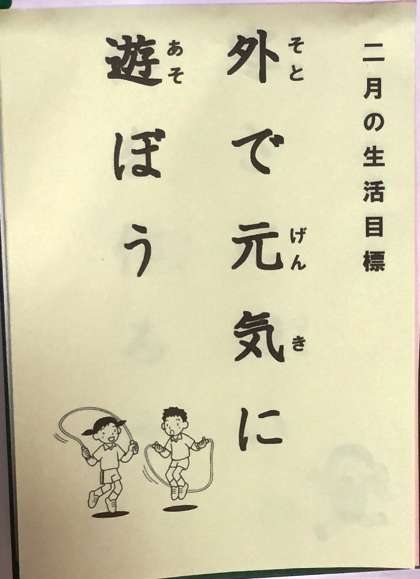 二月の生活目標
外で元気に
そと げん き
遊ぼう
あそ